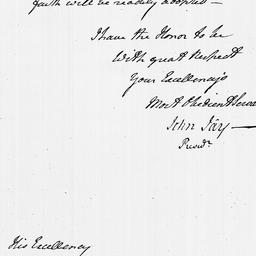 faith will be readily adopted —
I have the Honor to be
With great Respect
Your Excellency's
Most Obedient Serva
John Jay —
Presidt
His Excellency